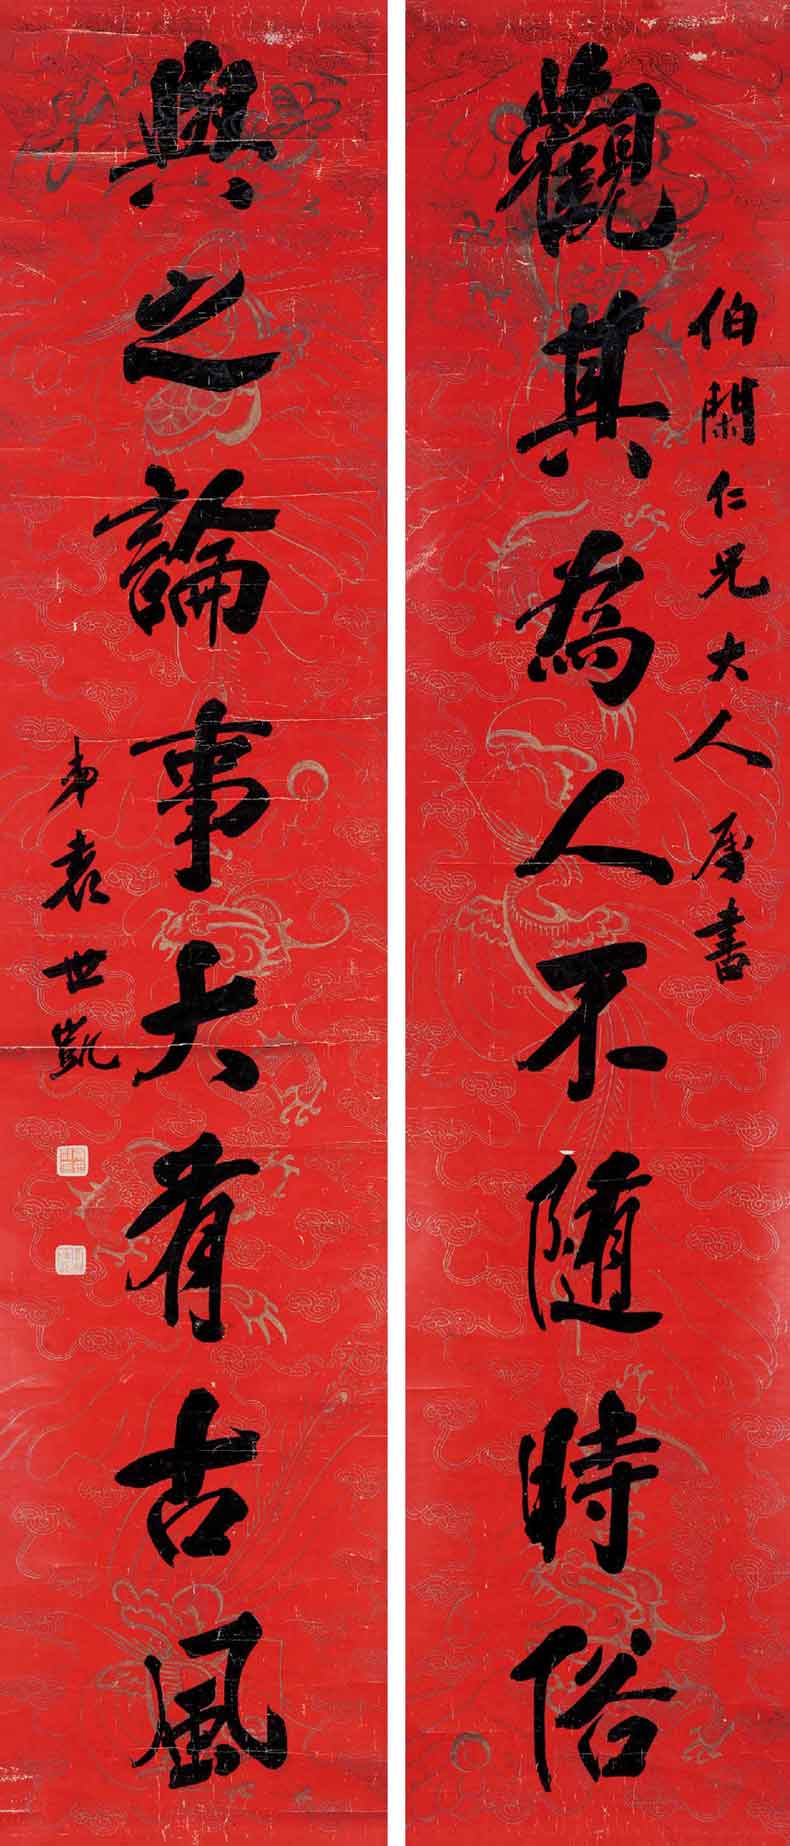 觀其為人不隨時俗
伯蘭仁兄大人屬書
與之論事大有古風
弟袁世凱